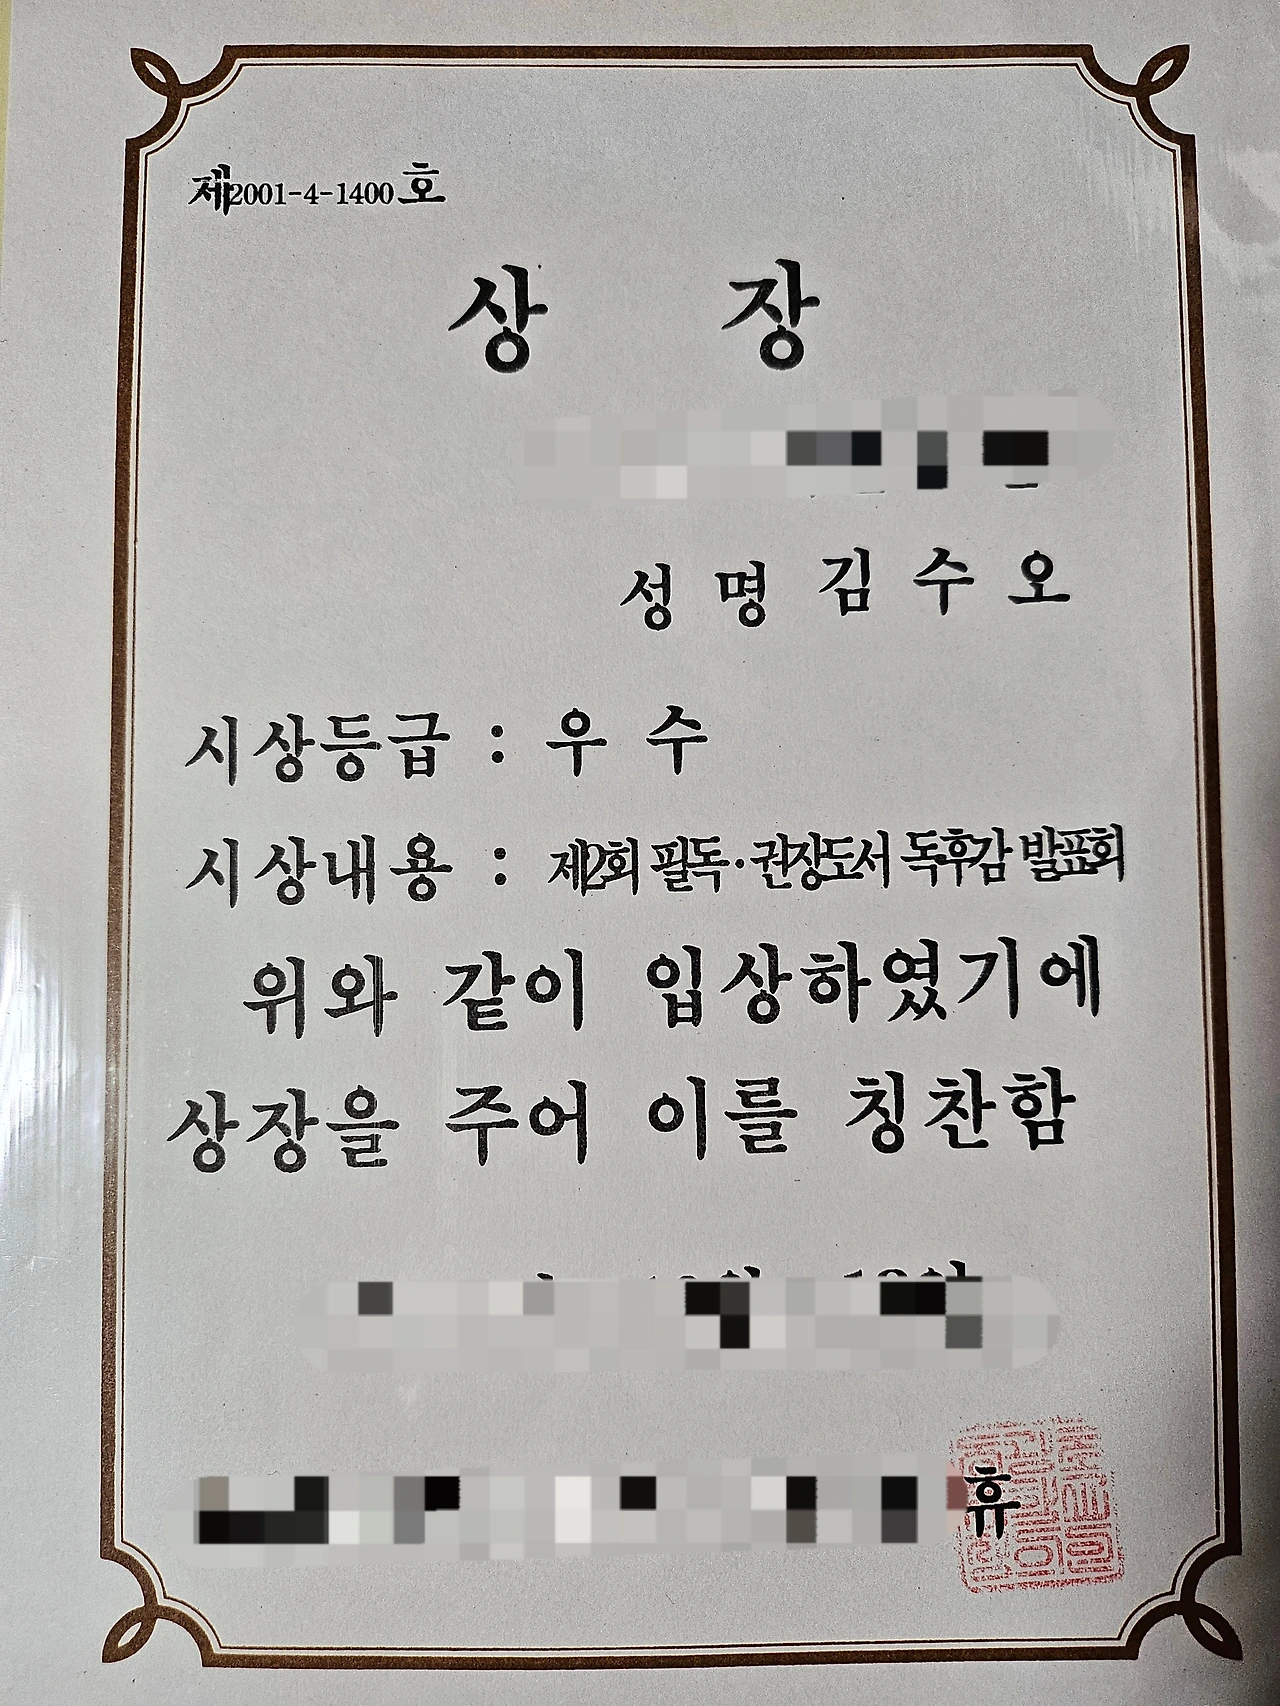 제2001-4-1400호
상 장
성 명 김 수 오
시상등급 : 우 수
시상내용 : 제2회 필독·권장도서 독후감 발표회
위와 같이 입상하였기에
상장을 주어 이를 칭찬함
휴